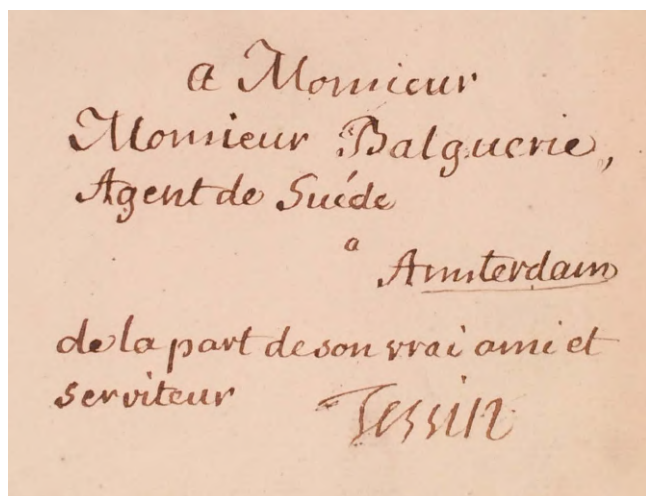 a Monsieur
Monsieur Balguerie,
Agent de Suéde
a
Amsterdam
de la part de son vrai ami et
serviteur
Tessin